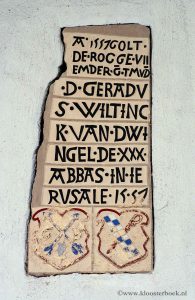 A · 1557 GOLT ·
DE · ROGGE · VII
EMDER · G · TMVD
· D · GERADV
S · WILTINC
K · VAN · DWI
NGEL · DE · XXX
ABBAS · IN · HE
RUSALE · 15·57
©www.kloosterboek.nl